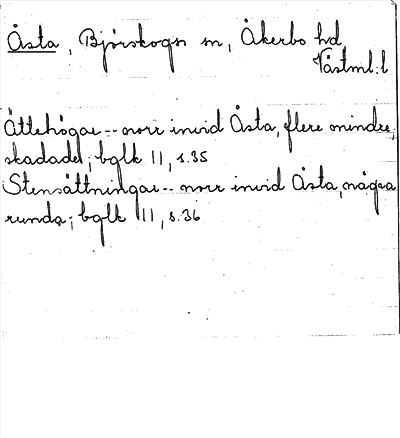 Åsta, Björskogs sn, Åkerbo hd
Västml. l
Ättehögar -- norr invid Åsta, flere mindre,
skadade; bglk 11, s. 35
Stensättningar -- norr invid Åsta, några
runda; bglk 11, s. 36